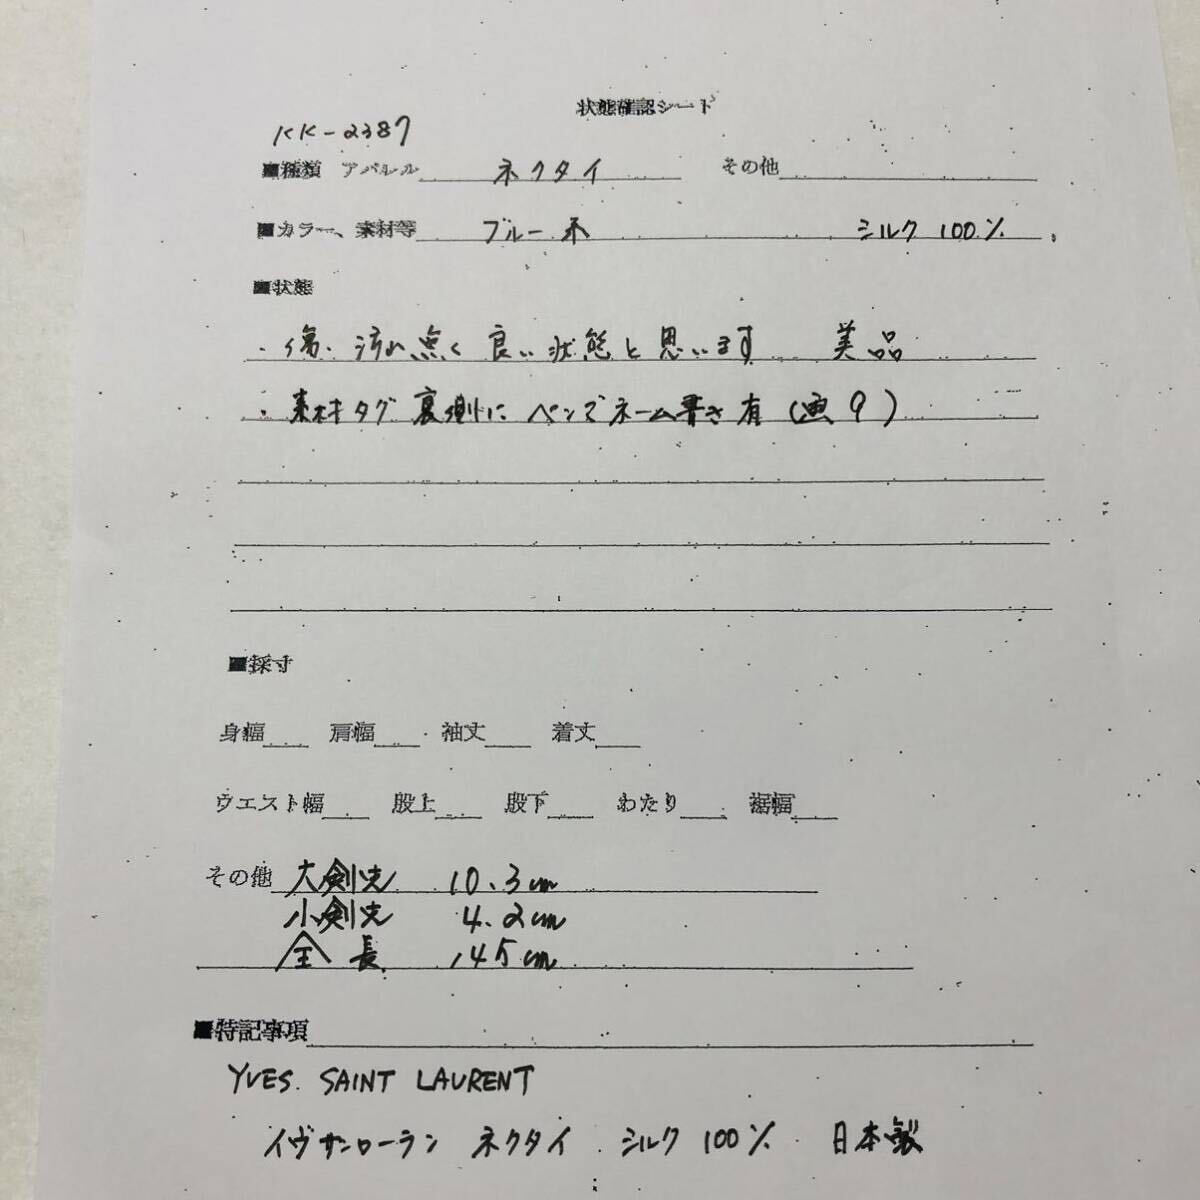 状態確認シート
KK-2387
■種類 アパレル ネクタイ その他
■カラー、素材等 ブルー系 シルク 100%
■状態
・傷、汚れ無く 良い状態と思います 美品
・素材タグ裏側に ペンズネーム書き有 (画9)
■採寸
身幅 肩幅 袖丈 着丈
ウエスト幅 股上 股下 わたり 裾幅
その他 大剣先 10.3cm
小剣先 4.2cm
全長 145cm
■特記事項
YVES. SAINT LAURENT
イヴサンローラン ネクタイ シルク 100% 日本製